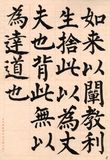 如來以闡教利
生捨此以為丈
夫也背此無以
為達道也